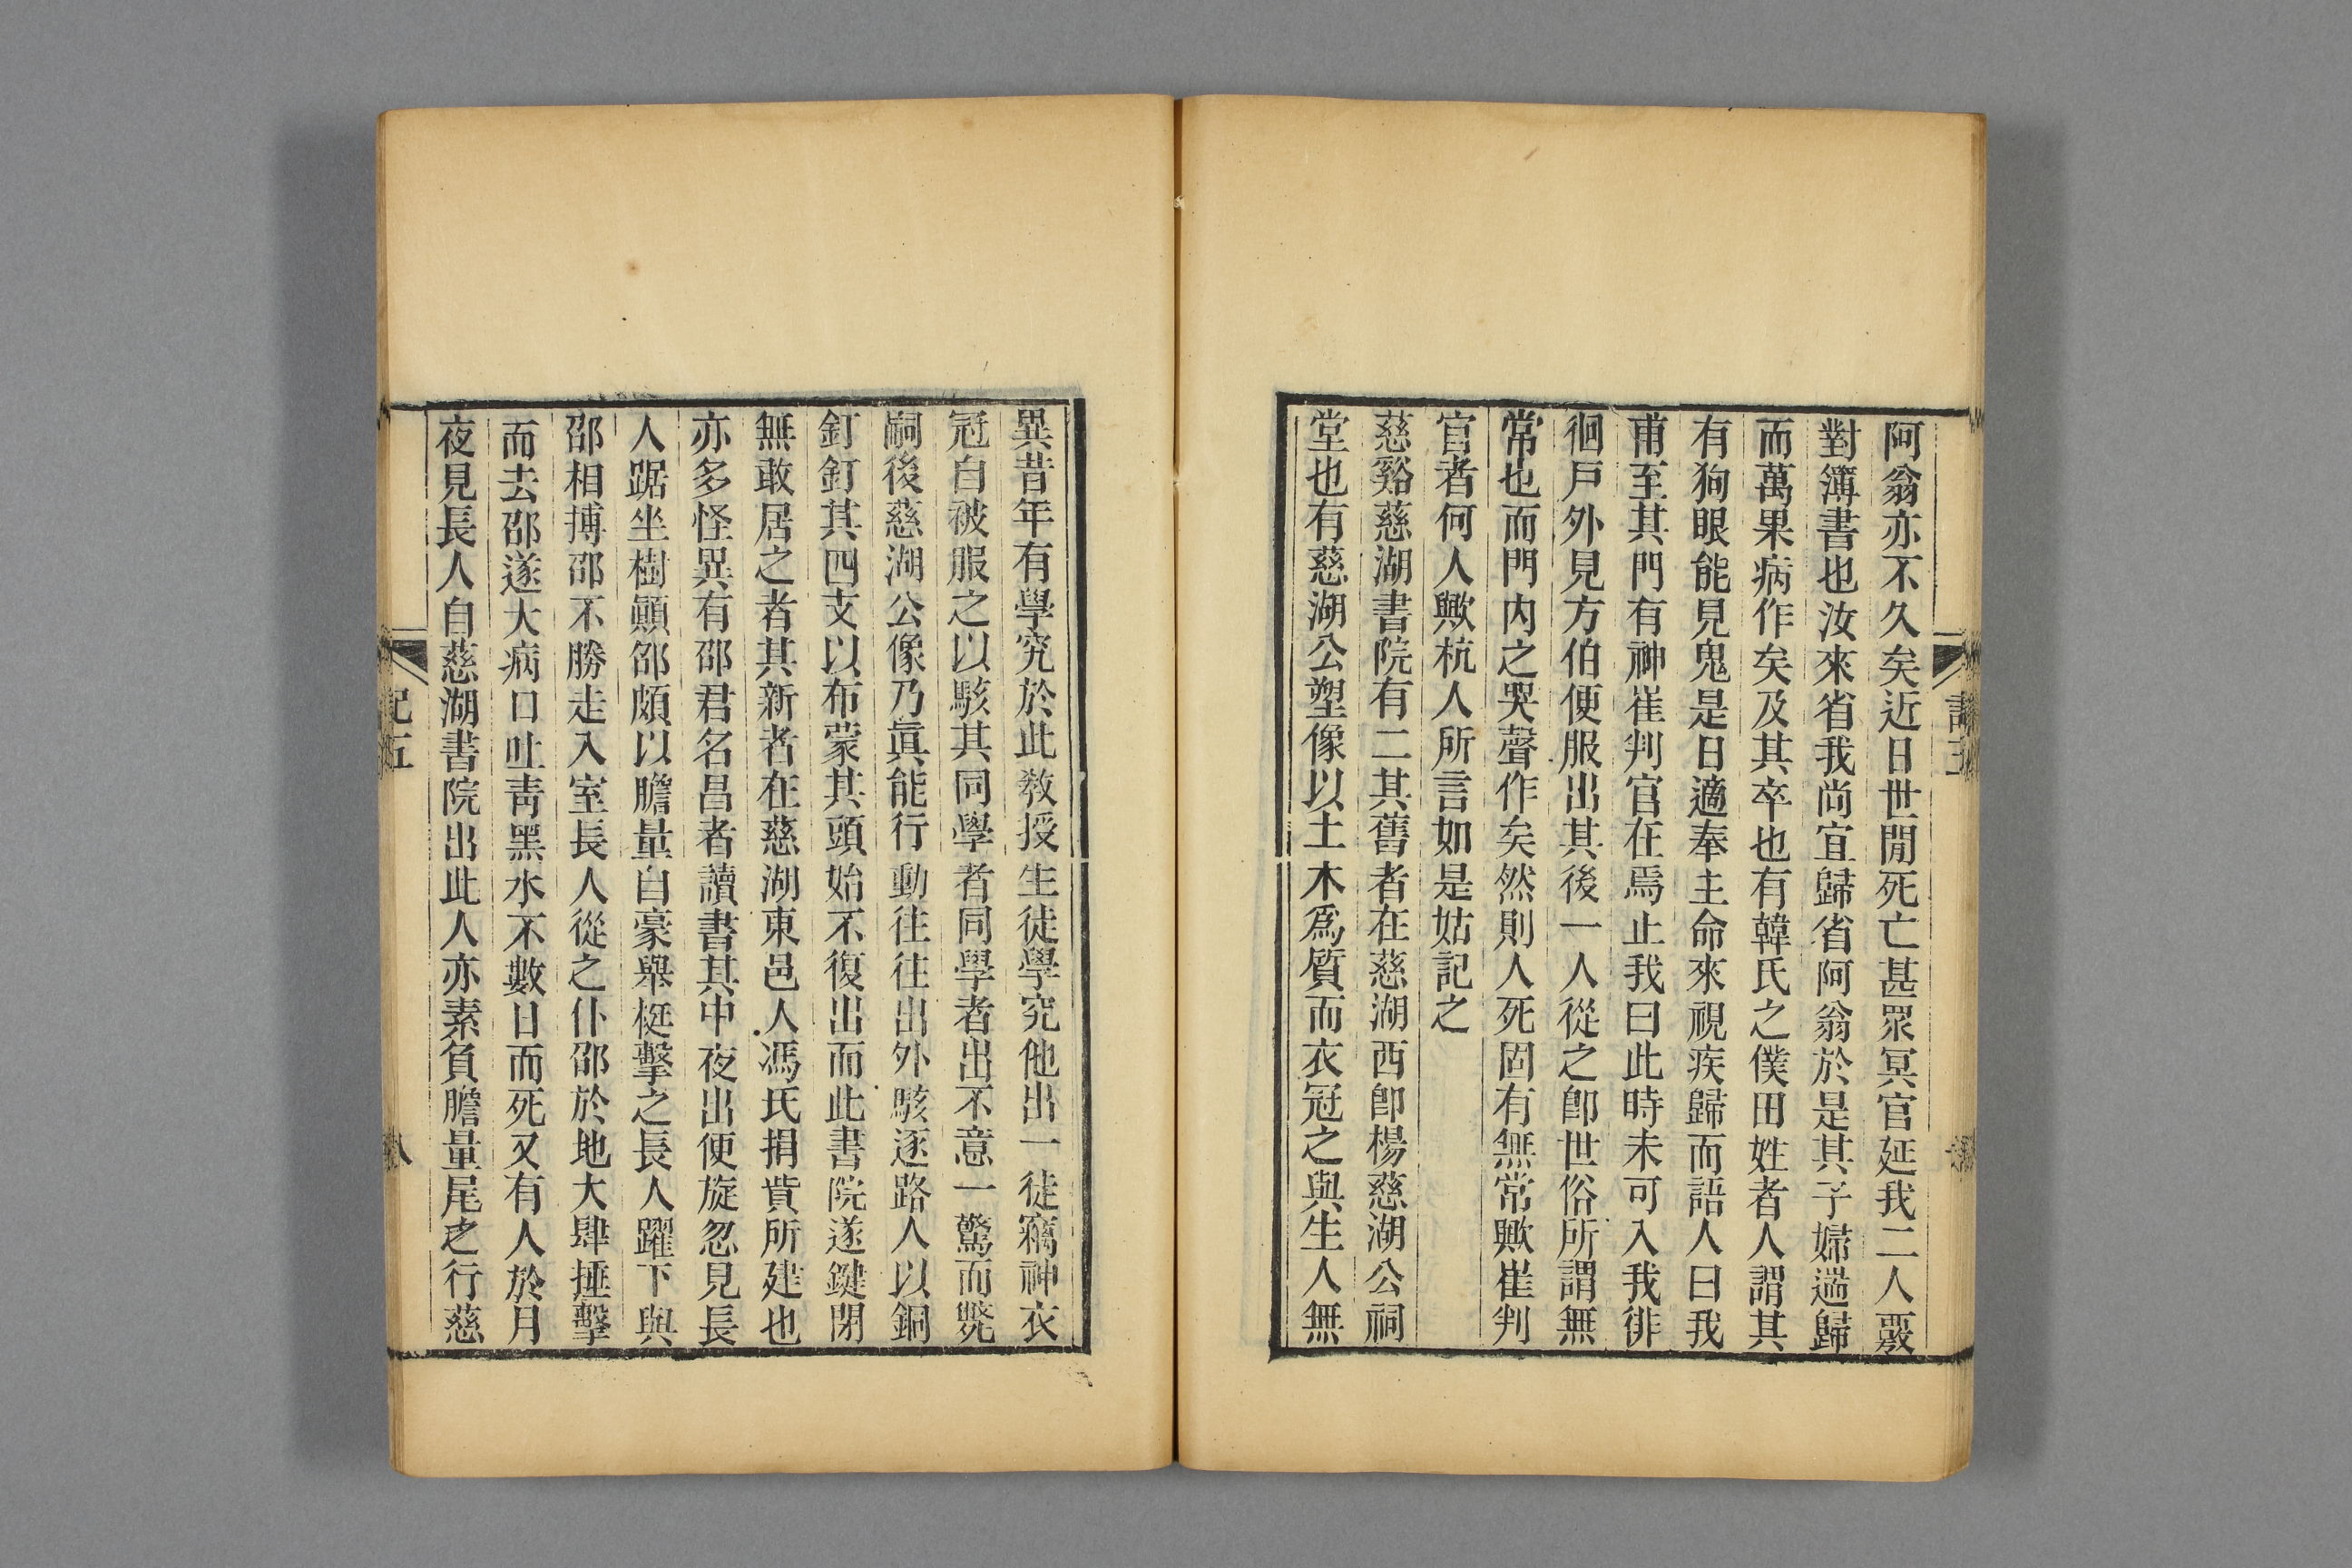 阿翁亦不久矣近日世閒死亡甚眾冥官延我二人覈
對簿書也汝來省我尚宜歸省阿翁於是其子婦遄歸
而萬果病作矣及其卒也有韓氏之僕田姓者人謂其
有狗眼能見鬼是日適奉主命來視疾歸而語人曰我
甫至其門有神崔判官在焉止我曰此時未可入我徘
徊戸外見方伯便服出其後一人從之卽世俗所謂無
常也而門內之哭聲作矣然則人死固有無常歟崔判
官者何人歟杭人所言如是姑記之
慈谿慈湖書院有二其舊者在慈湖西卽楊慈湖公祠
堂也有慈湖公塑像以土木爲質而衣冠之與生人無
異昔年有學究於此敎授生徒學究他出一徒竊神衣
冠自被服之以駭其同學者同學者出不意一驚而斃
嗣後慈湖公像乃眞能行動往往出外駭逐路人以銅
釘釘其四支以布蒙其頭始不復出而此書院遂鍵閉
無敢居之者其新者在慈湖東邑人馮氏捐貲所建也
亦多怪異有邵君名昌者讀書其中夜出便旋忽見長
人踞坐樹顚邵頗以膽量自豪舉梃擊之長人躍下與
邵相搏邵不勝走入室長人從之仆邵於地大肆捶擊
而去邵遂大病口吐靑黑水不數日而死又有人於月
夜見長人自慈湖書院出此人亦素負膽量尾之行慈
記五
八